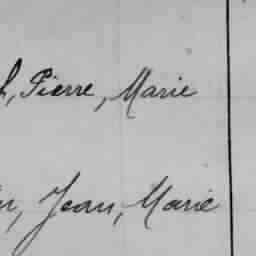 Pierre, Marie
Jean, Marie